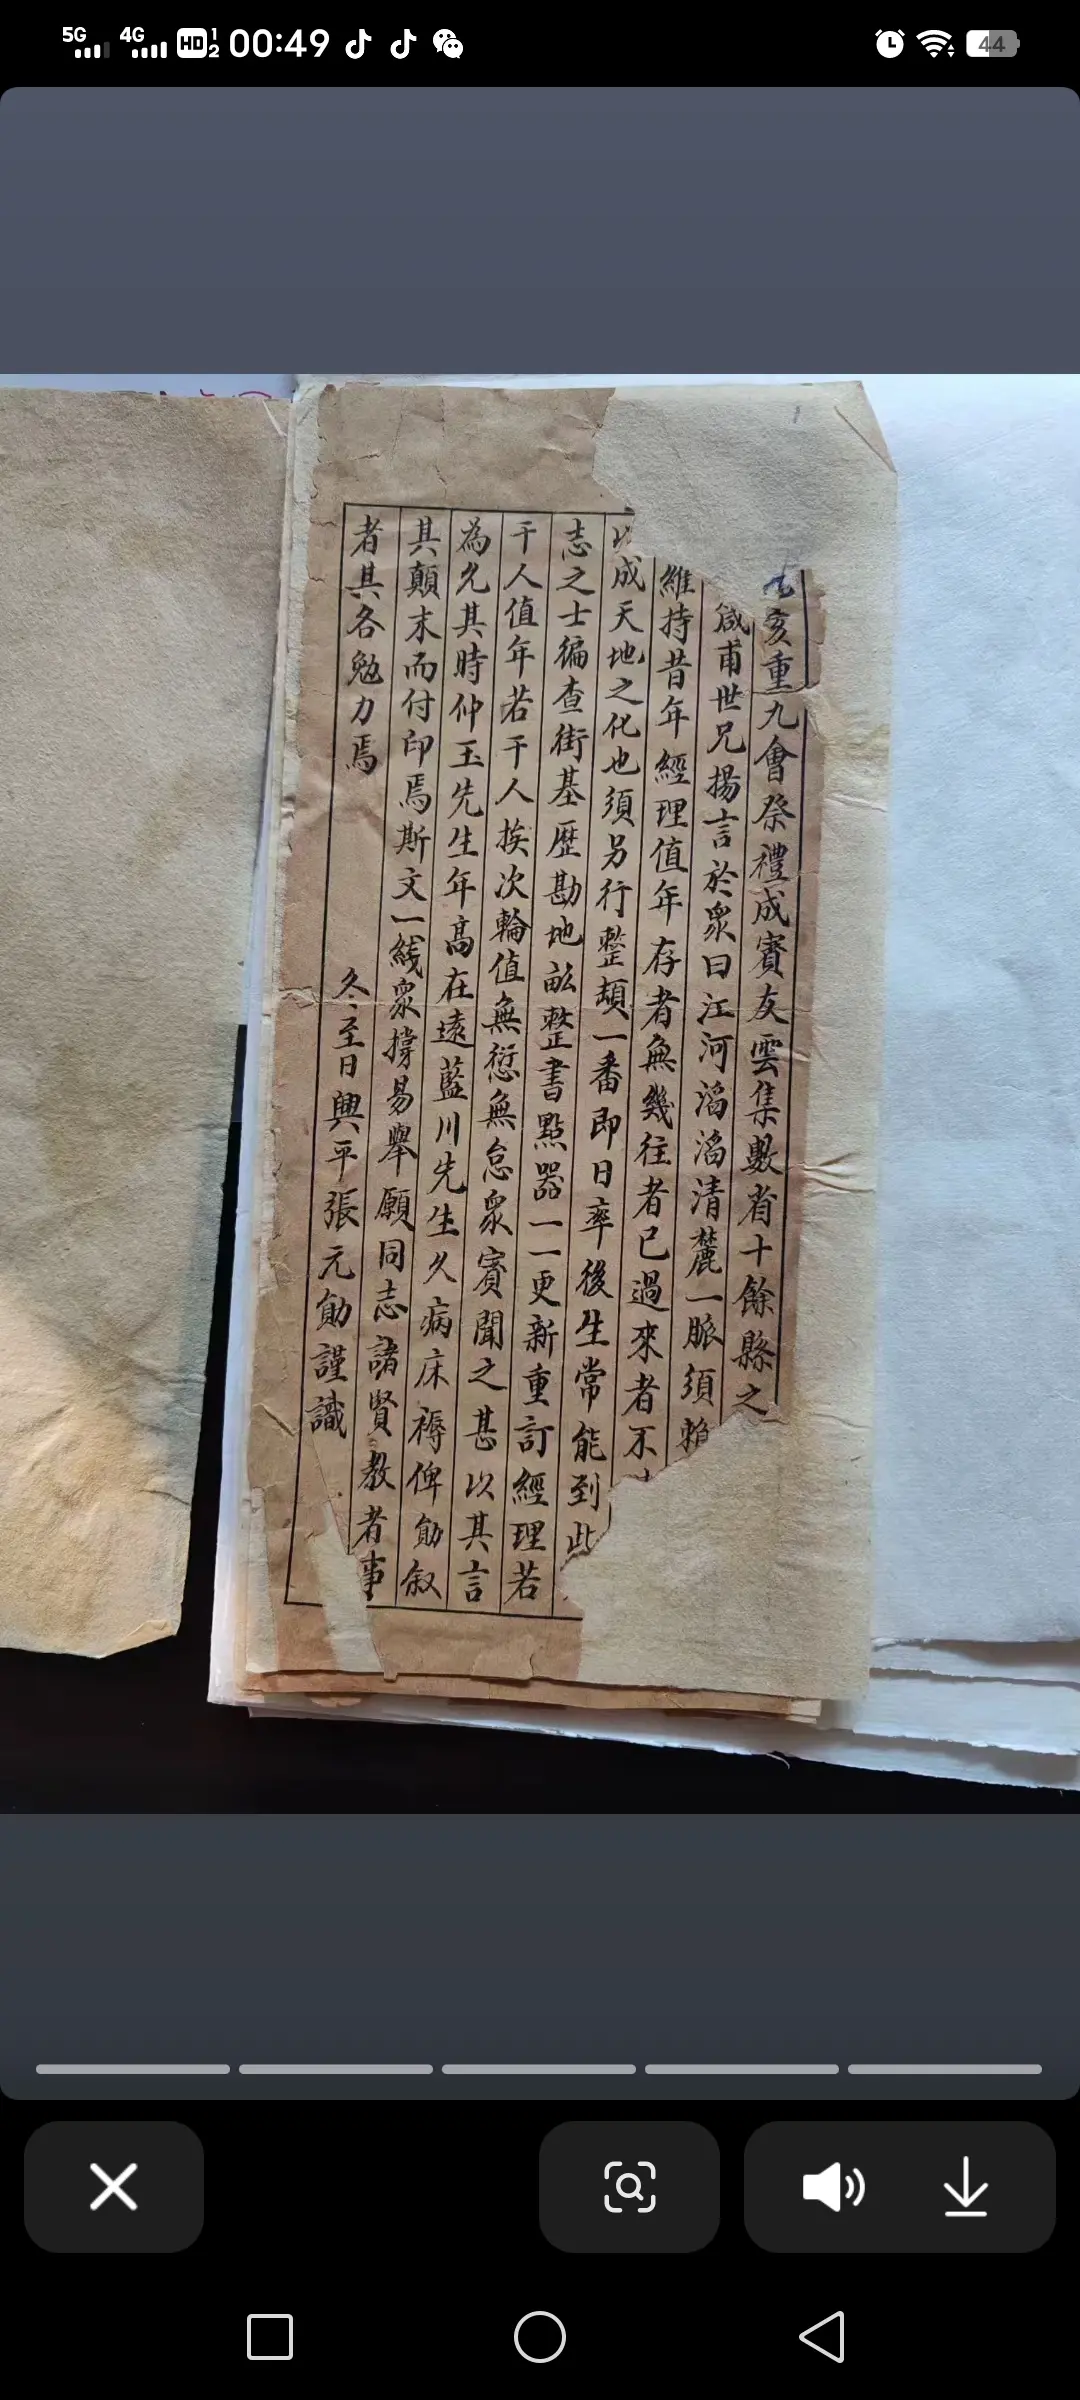 5G 4G HD 1 2 00:49 44
亥重九會祭禮成賓友雲集數省十餘縣之
箴甫世兄揚言於眾曰江河滔滔清麓一脈須賴
維持昔年經理值年存者無幾往者已過來者不
成天地之化也須另行整頓一番即日率後生常能到此
志之士徧查街基歷勘地畝整書點器一一更新重訂經理若
干人值年若干人挨次輪值無愆無怠眾賓聞之甚以其言
為允其時仲玉先生年高在遠藍川先生久病床褥俾勛叙
其顛末而付印焉斯文一綫眾撐易舉願同志諸賢教者事
者其各勉力焉
冬至日興平張元勛謹識